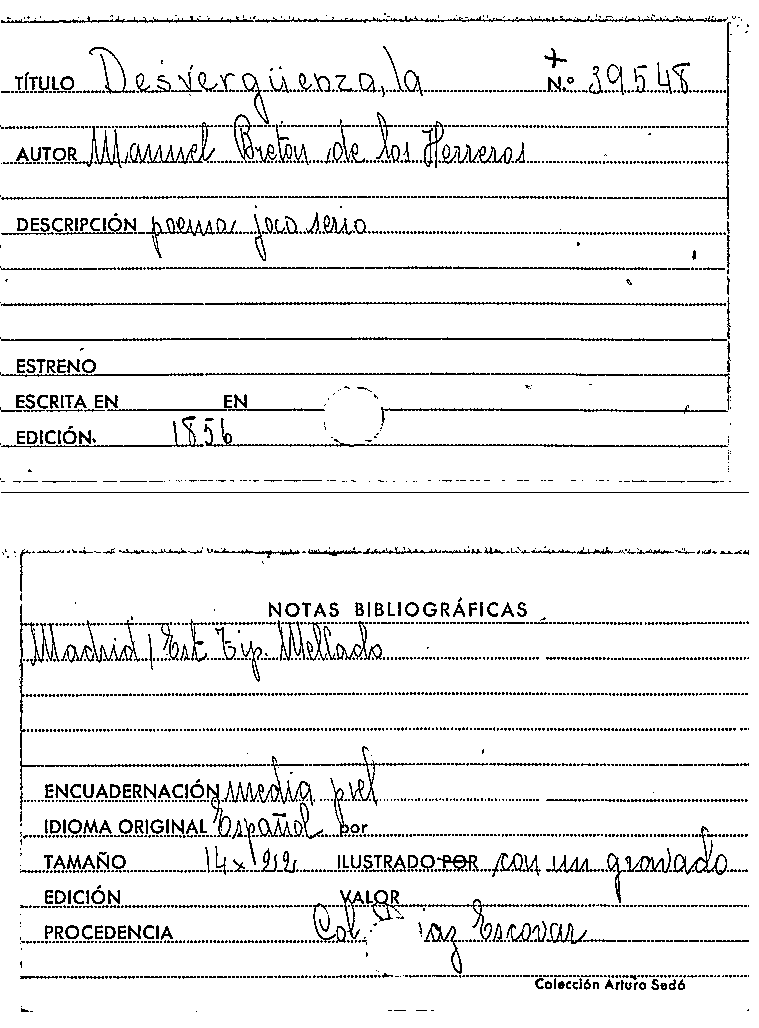 TÍTULO Desvergüenza, la N.º 39548
AUTOR Manuel Bretón de los Herreros
DESCRIPCIÓN poema joco serio
ESTRENO
ESCRITA EN EN
EDICIÓN. 1856
NOTAS BIBLIOGRÁFICAS
Madrid / Est Tip. Mellado
ENCUADERNACIÓN media piel
IDIOMA ORIGINAL Español por
TAMAÑO 14x ILUSTRADO POR con un gravado
EDICIÓN VALOR
PROCEDENCIA Col. Diaz Escovar
Colección Arturo Sedó